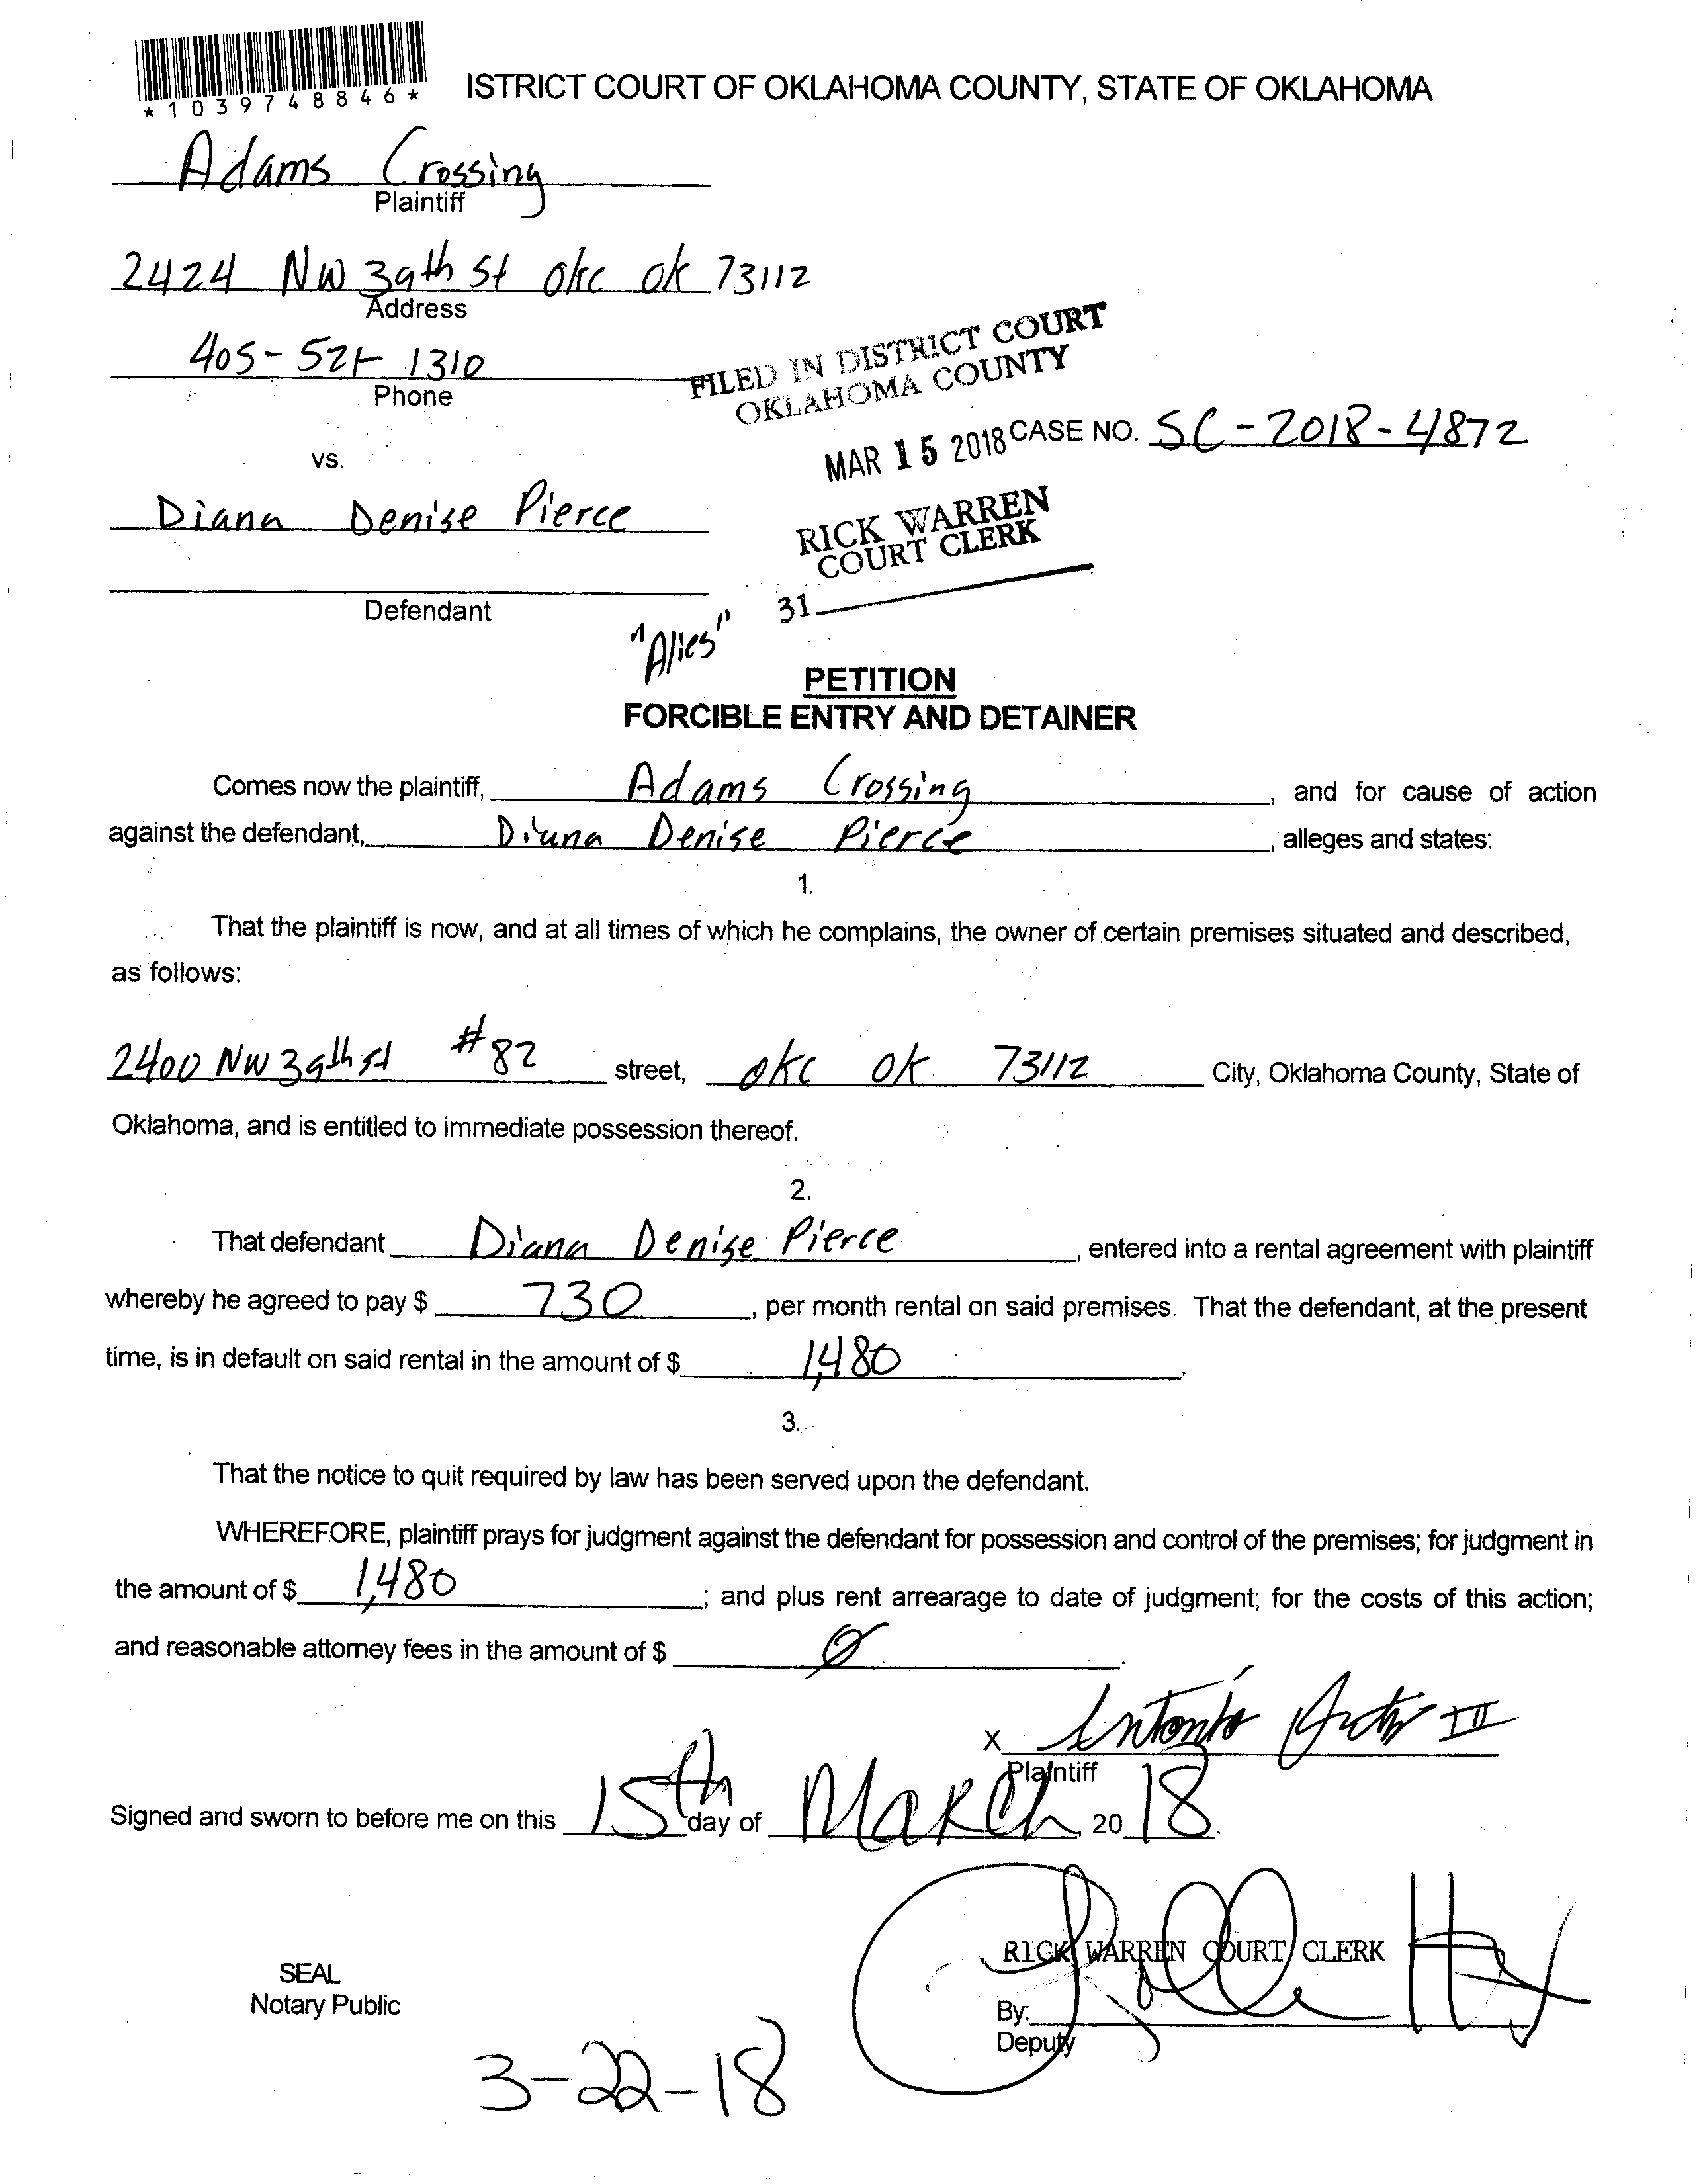 *1039748846*
ISTRICT COURT OF OKLAHOMA COUNTY, STATE OF OKLAHOMA
Adams Crossing
Plaintiff
2424 NW 39th St okc ok 73112
Address
405-521-1310
Phone
FILED IN DISTRICT COURT
OKLAHOMA COUNTY
MAR 15 2018 CASE NO. SC-2018-4872
vs.
Diana Denise Pierce
RICK WARREN
COURT CLERK
31
Defendant
"Alies"
PETITION
FORCIBLE ENTRY AND DETAINER
Comes now the plaintiff, Adams Crossing, and for cause of action
against the defendant, Diana Denise Pierce, alleges and states:
1.
That the plaintiff is now, and at all times of which he complains, the owner of certain premises situated and described,
as follows:
2400 NW 39th st #82 street, okc ok 73112 City, Oklahoma County, State of
Oklahoma, and is entitled to immediate possession thereof.
2.
That defendant Diana Denise Pierce, entered into a rental agreement with plaintiff
whereby he agreed to pay $ 730, per month rental on said premises. That the defendant, at the present
time, is in default on said rental in the amount of $ 1,480.
3.
That the notice to quit required by law has been served upon the defendant.
WHEREFORE, plaintiff prays for judgment against the defendant for possession and control of the premises; for judgment in
the amount of $ 1,480; and plus rent arrearage to date of judgment; for the costs of this action;
and reasonable attorney fees in the amount of $ 0.
X Antonio III
Plaintiff
Signed and sworn to before me on this 15th day of March, 2018.
RICK WARREN COURT CLERK
SEAL
Notary Public
By:
Deputy
3-22-18